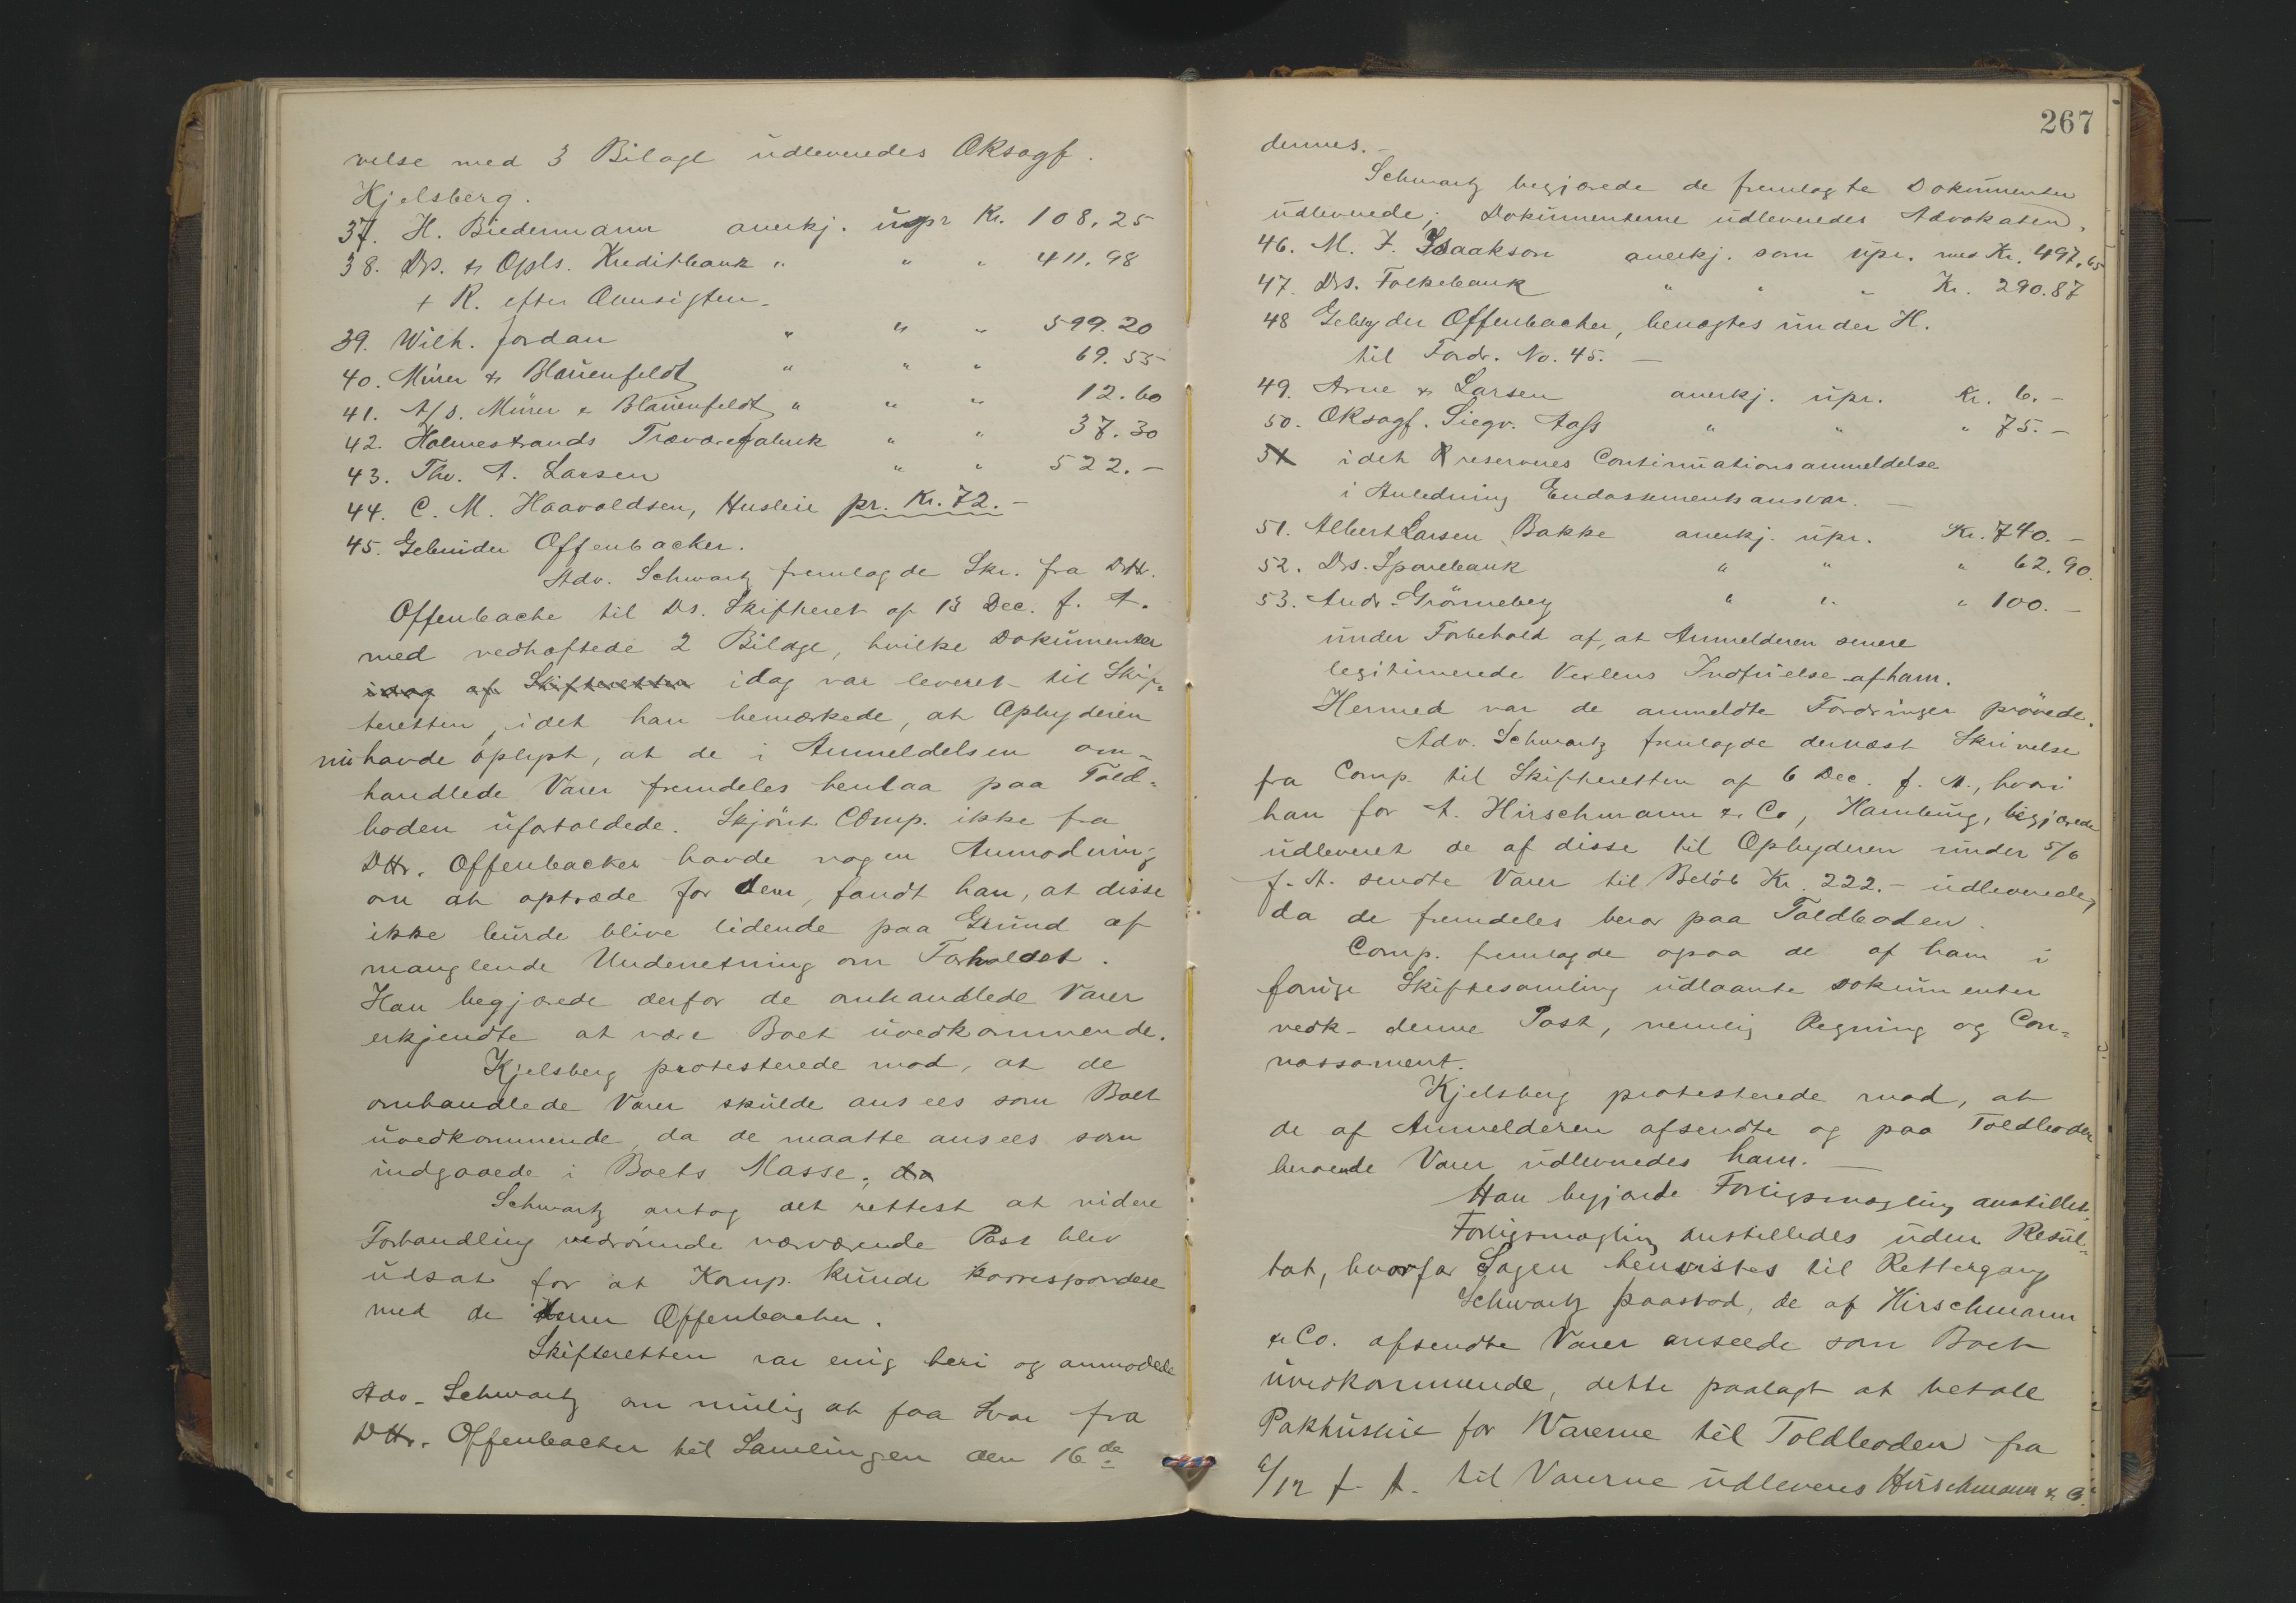 velse med 3 Bilage udleveredes OKsagf.
Kjelsberg.
37. H. Biedermann anerkj. upr Kr. 108,25
38. Ds. & Opls. Kreditbank " " " 411.98
+ R. efter Omsigten.
39. Wilh. Jordan " " " 599.20
40. Mürer & Blauenfeldt " " " 69.55
41. A/S. Mürer & Blauenfeldt " " " 12.60
42. Holmestrands Trævarefabrik " " 37.30
43. Thv. A. Larsen " " 522.-
44. C. M. Haavaldsen, Husleie pr. Kr. 72.-
45. Gebrüder Offenbacher.
Adv. Schwartz fremlagde Skr. fra DHr.
Offenbache til Ds. Skifteret af 13 Dec. f. A.
med vedhæftede 2 Bilage, hvilke Dokumenter
idag af Skifteretten idag var leveret til Skif-
teretten, idet han bemærkede, at Opbyderen
nu havde oplyst, at de i Anmeldelsen om-
handlede Varer fremdeles henlaa paa Told-
boden ufortoldede. Skjönt Comp. ikke fra
DHr. Offenbacher havde nogen Anmodning
om at optræde for dem, fandt han, at disse
ikke burde blive lidende paa Grund af
manglende Underretning om Forholdet.
Han begjærede derfor de omhandlede Varer
erkjendte at være Boet uvedkommende.
Kjelsberg protesterede mod, at de
omhandlede Varer skulde ansees som Boet
uvedkommende, da de maatte ansees som
indgaaede i Boets Masse; da
Schwartz antog det rettest at videre
Forhandling vedrörende nærværende Post blev
udsat for at Komp. kunde korrespondere
med de Herrer Offenbacher.
Skifteretten var enig heri og anmodede
Adv. Schwartz om mulig at faa Svar fra
DHr. Offenbacher til Samlingen den 16de
267
dennes.-
Schwartz begjærede de fremlagte Dokumenter
udleverede; Dokumenterne udleveredes Advokaten.
46. M. I. Isaakson anerkj. som upr. med Kr. 497,65
47. Ds. Folkebank " " " Kr. 290.87
48 Gebryder Offenbacher, benægtes under H.
til Fordr. No. 45. -
49. Arne & Larsen anerkj. upr. Kr. 6.-
50. OKsagf. Siegv. Aass " " " 75.-
51 idet R reserveres Continuationsanmeldelse
i Anledning Endossementsansvar. -
51. Albert Larsen Bakke anerkj. upr. Kr. 740.-
52. Ds. Sparebank " " " 62.90.
53. Andr. Grönneberg " " " 100.-
under Forbehold af, at Anmelderen senere
legitimerede Vexlens Indfrielse af ham.
Hermed var de anmeldte Fordringer prövede.
Adv. Schwartz fremlagde dernæst Skrivelse
fra Comp. til Skifteretten af 6 Dec. f. A., hvori
han for A. Hirschmann & Co, Hamburg, begjærede
udleveret de af disse til Opbyderen under 5/6
f. A. sendte Varer til Belöb Kr. 222.- udleverede,
da de fremdeles beror paa Toldboden.
Comp. fremlagde ogsaa de af ham i
forrige Skiftesamling udlaante Dokumenter
vedk. denne Post, nemlig Regning og Con-
nossoment.
Kjelsberg protesterede mod, at
de af Anmelderen afsendte og paa Toldboden
beroende Varer udleveredes ham. -
Han begjærede Forligsmægling anstillet.
Forligsmægling anstilledes uden Resul-
tat, hvorfor Sagen henvistes til Rettergang
Schwartz paastod, de af Hirschmann
& Co. afsendte Varer anseede som Boet
uvedkommende, dette paalagt at betale
Pakhusleie for Varerne til Toldboden fra
6/12 f. A. til Varerne udleveres Hirschmann & Co.